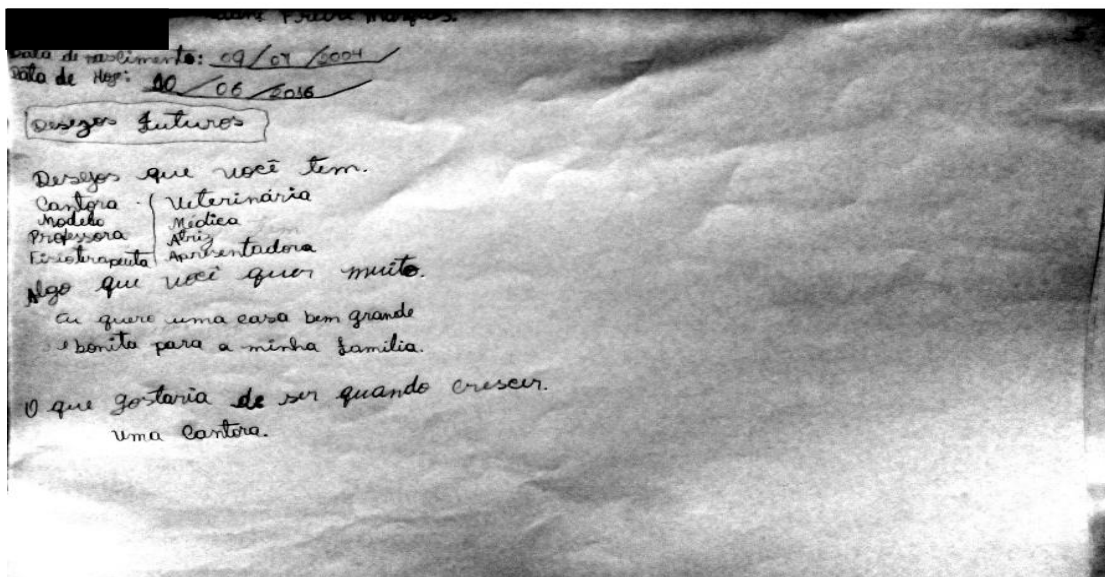 Freire Marques.
Data de nascimento: 09/07/2004
Data de Hoje: 10/06/2016
Desezos Futuros
Desejos que você tem.
Cantora Veterinária
Modelo Médica
Professora Atriz
Fisioterapeuta Apresentadora
Algo que você quer muito.
Eu quero uma casa bem grande
e bonita para a minha família.
O que gostaria de ser quando crescer.
uma cantora.